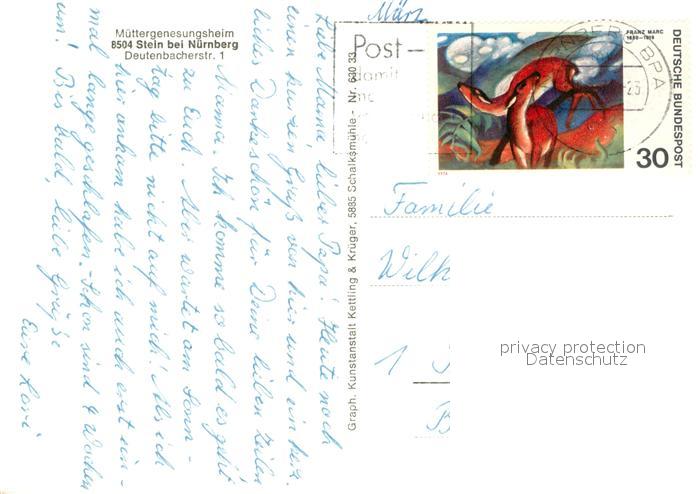 Müttergenesungsheim
8504 Stein bei Nürnberg
Deutenbacherstr. 1
März
Liebe Mama, lieber Papa! Heute noch
einen kurzen Gruß von hier und ein herz-
liches Dankeschön für Deine lieben Zeilen
Mama. Ich komme so bald es geht
zu Euch. Aber wartet am Sonn-
tag bitte nicht auf mich! Als ich
hier ankam habe ich auch erst ein-
mal lange geschlafen. Schon sind 4 Wochen
um! Bis bald, liebe Grüße
Eure Lori
Graph. Kunstanstalt Kettling & Krüger, 5885 Schalksmühle - Nr. 630 33
Post –
damit
FRANZ MARC
1880–1916
DEUTSCHE BUNDESPOST
30
1974
Familie
Wilh
1
B
privacy protection
Datenschutz